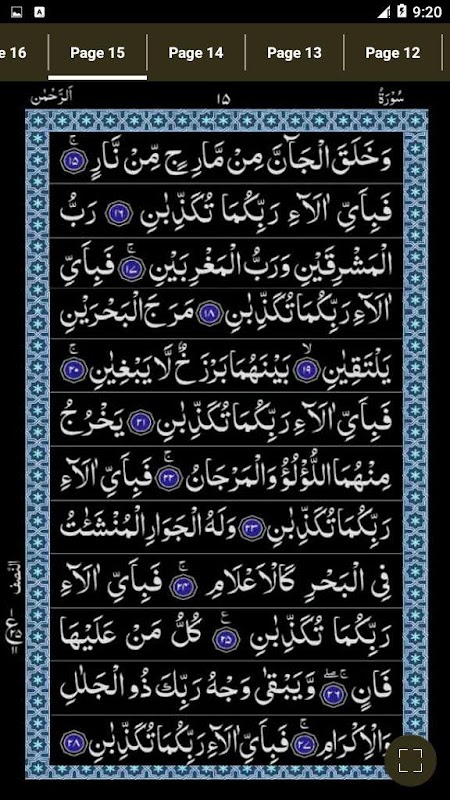 9:20
e 16 Page 15 Page 14 Page 13 Page 12
سُوْرَةُ ١٥ اَلرَّحْمٰن
وَخَلَقَ الْجَآنَّ مِنْ مَّارِجٍ مِّنْ نَّارٍ ۚ ﴿١٥﴾
فَبِاَيِّ اٰلَآءِ رَبِّكُمَا تُكَذِّبٰنِ ﴿١٦﴾ رَبُّ
الْمَشْرِقَيْنِ وَرَبُّ الْمَغْرِبَيْنِ ۚ ﴿١٧﴾ فَبِاَيِّ
اٰلَآءِ رَبِّكُمَا تُكَذِّبٰنِ ﴿١٨﴾ مَرَجَ الْبَحْرَيْنِ
يَلْتَقِيٰنِ ۙ ﴿١٩﴾ بَيْنَهُمَا بَرْزَخٌ لَّا يَبْغِيٰنِ ۚ ﴿٢٠﴾
فَبِاَيِّ اٰلَآءِ رَبِّكُمَا تُكَذِّبٰنِ ﴿٢١﴾ يَخْرُجُ
مِنْهُمَا اللُّؤْلُؤُ وَالْمَرْجَانُ ۚ ﴿٢٢﴾ فَبِاَيِّ اٰلَآءِ
رَبِّكُمَا تُكَذِّبٰنِ ﴿٢٣﴾ وَلَهُ الْجَوَارِ الْمُنْشَئٰتُ
فِي الْبَحْرِ كَالْاَعْلَامِ ۚ ﴿٢٤﴾ فَبِاَيِّ اٰلَآءِ
رَبِّكُمَا تُكَذِّبٰنِ ۧ ﴿٢٥﴾ كُلُّ مَنْ عَلَيْهَا
فَانٍ ۚۖ ﴿٢٦﴾ وَّيَبْقٰى وَجْهُ رَبِّكَ ذُو الْجَلٰلِ
وَالْاِكْرَامِ ۚ ﴿٢٧﴾ فَبِاَيِّ اٰلَآءِ رَبِّكُمَا تُكَذِّبٰنِ ﴿٢٨﴾
النصف